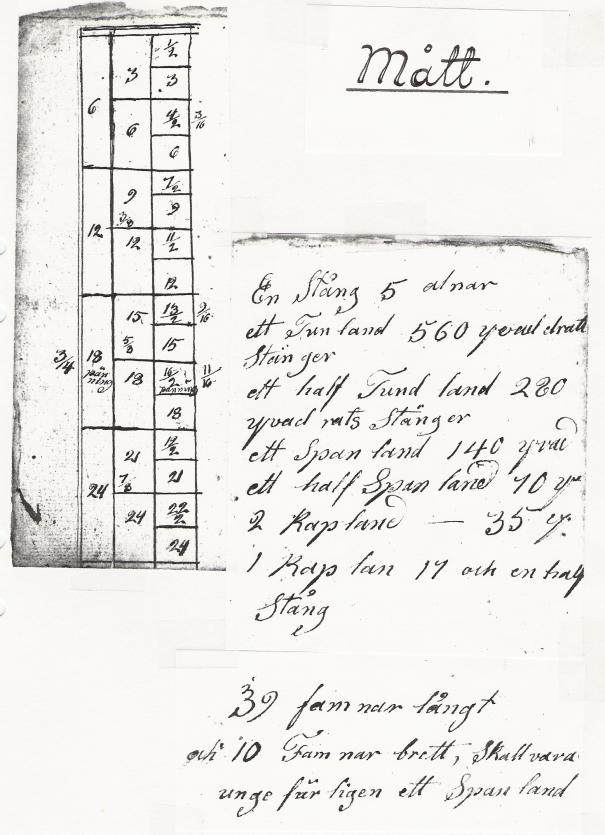 Mått.
1/2
3
3
6
4/2
3/16
6
6
7/2
9
9
3/8
12
12
11/2
12
15
13/2
9/16
5/8
15
3/4
18
18
16/2
11/16
18
21
19/2
7/8
21
24
24
22/2
24
En Stång 5 alnar
ett Tun land 560 yvad drati
Stänger
ett half Tund land 280
yvad rats Stänger
ett Span land 140 yvad
ett half Span land 70 yv
2 Kap land — 35 y.
1 Kap lan 17 och en half
Stång
39 famnar långt
och 10 Famnar brett, Skall vara
unge fär ligen ett Span land